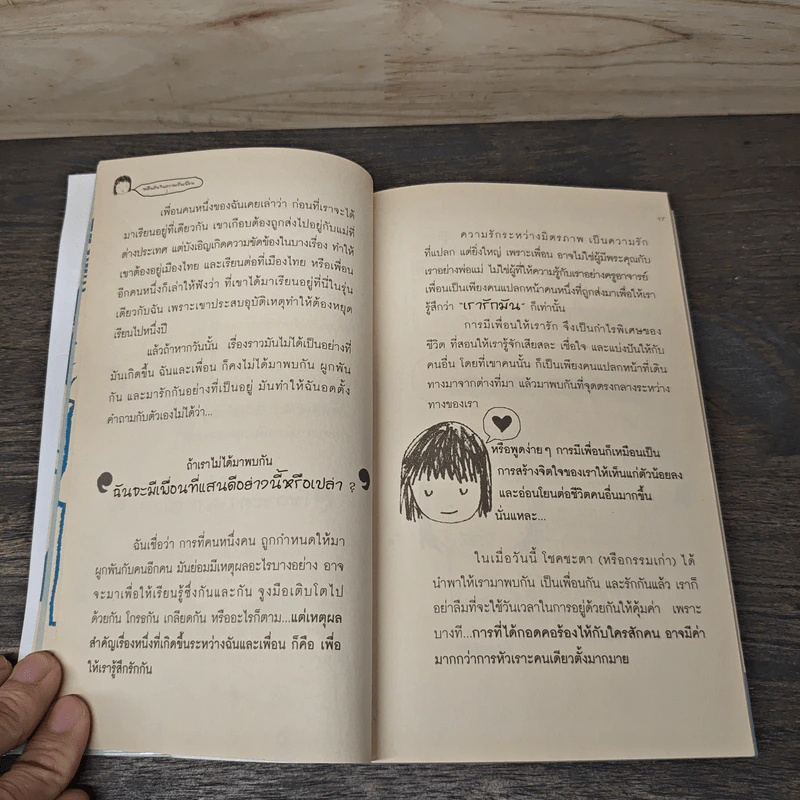 เพื่อนคนหนึ่งของฉันเคยเล่าว่า ก่อนที่เราจะได้
มาเรียนอยู่ที่เดียวกัน เขาเกือบต้องถูกส่งไปอยู่กับแม่ที่
ต่างประเทศ แต่บังเอิญเกิดความขัดข้องในบางเรื่อง ทำให้
เขาต้องอยู่เมืองไทย และเรียนต่อที่เมืองไทย หรือเพื่อน
อีกคนหนึ่งก็เล่าให้ฟังว่า ที่เขาได้มาเรียนอยู่ที่นี่ในรุ่น
เดียวกับฉัน เพราะเขาประสบอุบัติเหตุทำให้ต้องหยุด
เรียนไปหนึ่งปี
แล้วถ้าหากวันนั้น เรื่องราวมันไม่ได้เป็นอย่างที่
มันเกิดขึ้น ฉันและเพื่อน ก็คงไม่ได้มาพบกัน ผูกพัน
กัน และมารักกันอย่างที่เป็นอยู่ มันทำให้ฉันอดตั้ง
คำถามกับตัวเองไม่ได้ว่า...
ถ้าเราไม่ได้มาพบกัน
ฉันจะมีเพื่อนที่แสนดีอย่างนี้หรือเปล่า ?
ฉันเชื่อว่า การที่คนหนึ่งคน ถูกกำหนดให้มา
ผูกพันกับคนอีกคน มันย่อมมีเหตุผลอะไรบางอย่าง อาจ
จะมาเพื่อให้เรียนรู้ซึ่งกันและกัน จูงมือเติบโตไป
ด้วยกัน โกรธกัน เกลียดกัน หรืออะไรก็ตาม...แต่เหตุผล
สำคัญเรื่องหนึ่งที่เกิดขึ้นระหว่างฉันและเพื่อน ก็คือ เพื่อ
ให้เรารู้สึกรักกัน
ความรักระหว่างมิตรภาพ เป็นความรัก
ที่แปลก แต่ยิ่งใหญ่ เพราะเพื่อน อาจไม่ใช่ผู้มีพระคุณกับ
เราอย่างพ่อแม่ ไม่ใช่ผู้ที่ให้ความรู้กับเราอย่างครูอาจารย์
เพื่อนเป็นเพียงคนแปลกหน้าคนหนึ่งที่ถูกส่งมาเพื่อให้เรา
รู้สึกว่า "เรารักมัน" ก็เท่านั้น
การมีเพื่อนให้เรารัก จึงเป็นกำไรพิเศษของ
ชีวิต ที่สอนให้เรารู้จักเสียสละ เชื่อใจ และแบ่งปันให้กับ
คนอื่น โดยที่เขาคนนั้น ก็เป็นเพียงคนแปลกหน้าที่เดิน
ทางมาจากต่างที่มา แล้วมาพบกันที่จุดตรงกลางระหว่าง
ทางของเรา
หรือพูดง่ายๆ การมีเพื่อนก็เหมือนเป็น
การสร้างจิตใจของเราให้เห็นแก่ตัวน้อยลง
และอ่อนโยนต่อชีวิตคนอื่นมากขึ้น
นั่นแหละ...
ในเมื่อวันนี้ โชคชะตา (หรือกรรมเก่า) ได้
นำพาให้เรามาพบกัน เป็นเพื่อนกัน และรักกันแล้ว เราก็
อย่าลืมที่จะใช้วันเวลาในการอยู่ด้วยกันให้คุ้มค่า เพราะ
บางที...การที่ได้กอดคอร้องไห้กับใครสักคน อาจมีค่า
มากกว่าการหัวเราะคนเดียวตั้งมากมาย